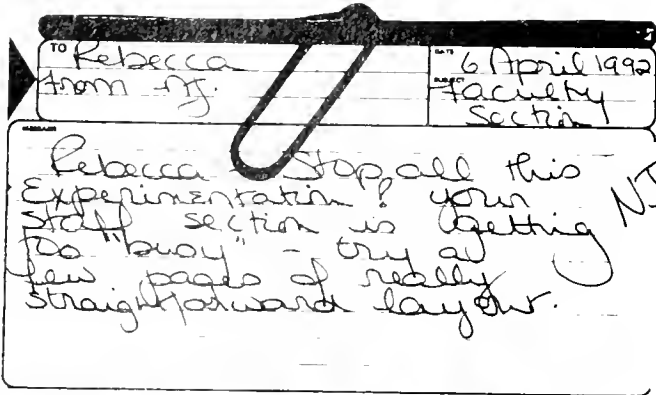 TO Rebecca
from NJ.
DATE 6 April 1992
SUBJECT Faculty
Section
Rebecca Stop all this
Experimentation! your
staff section is getting
too "busy" - try a
few pages of really
straightforward layout.
NJ